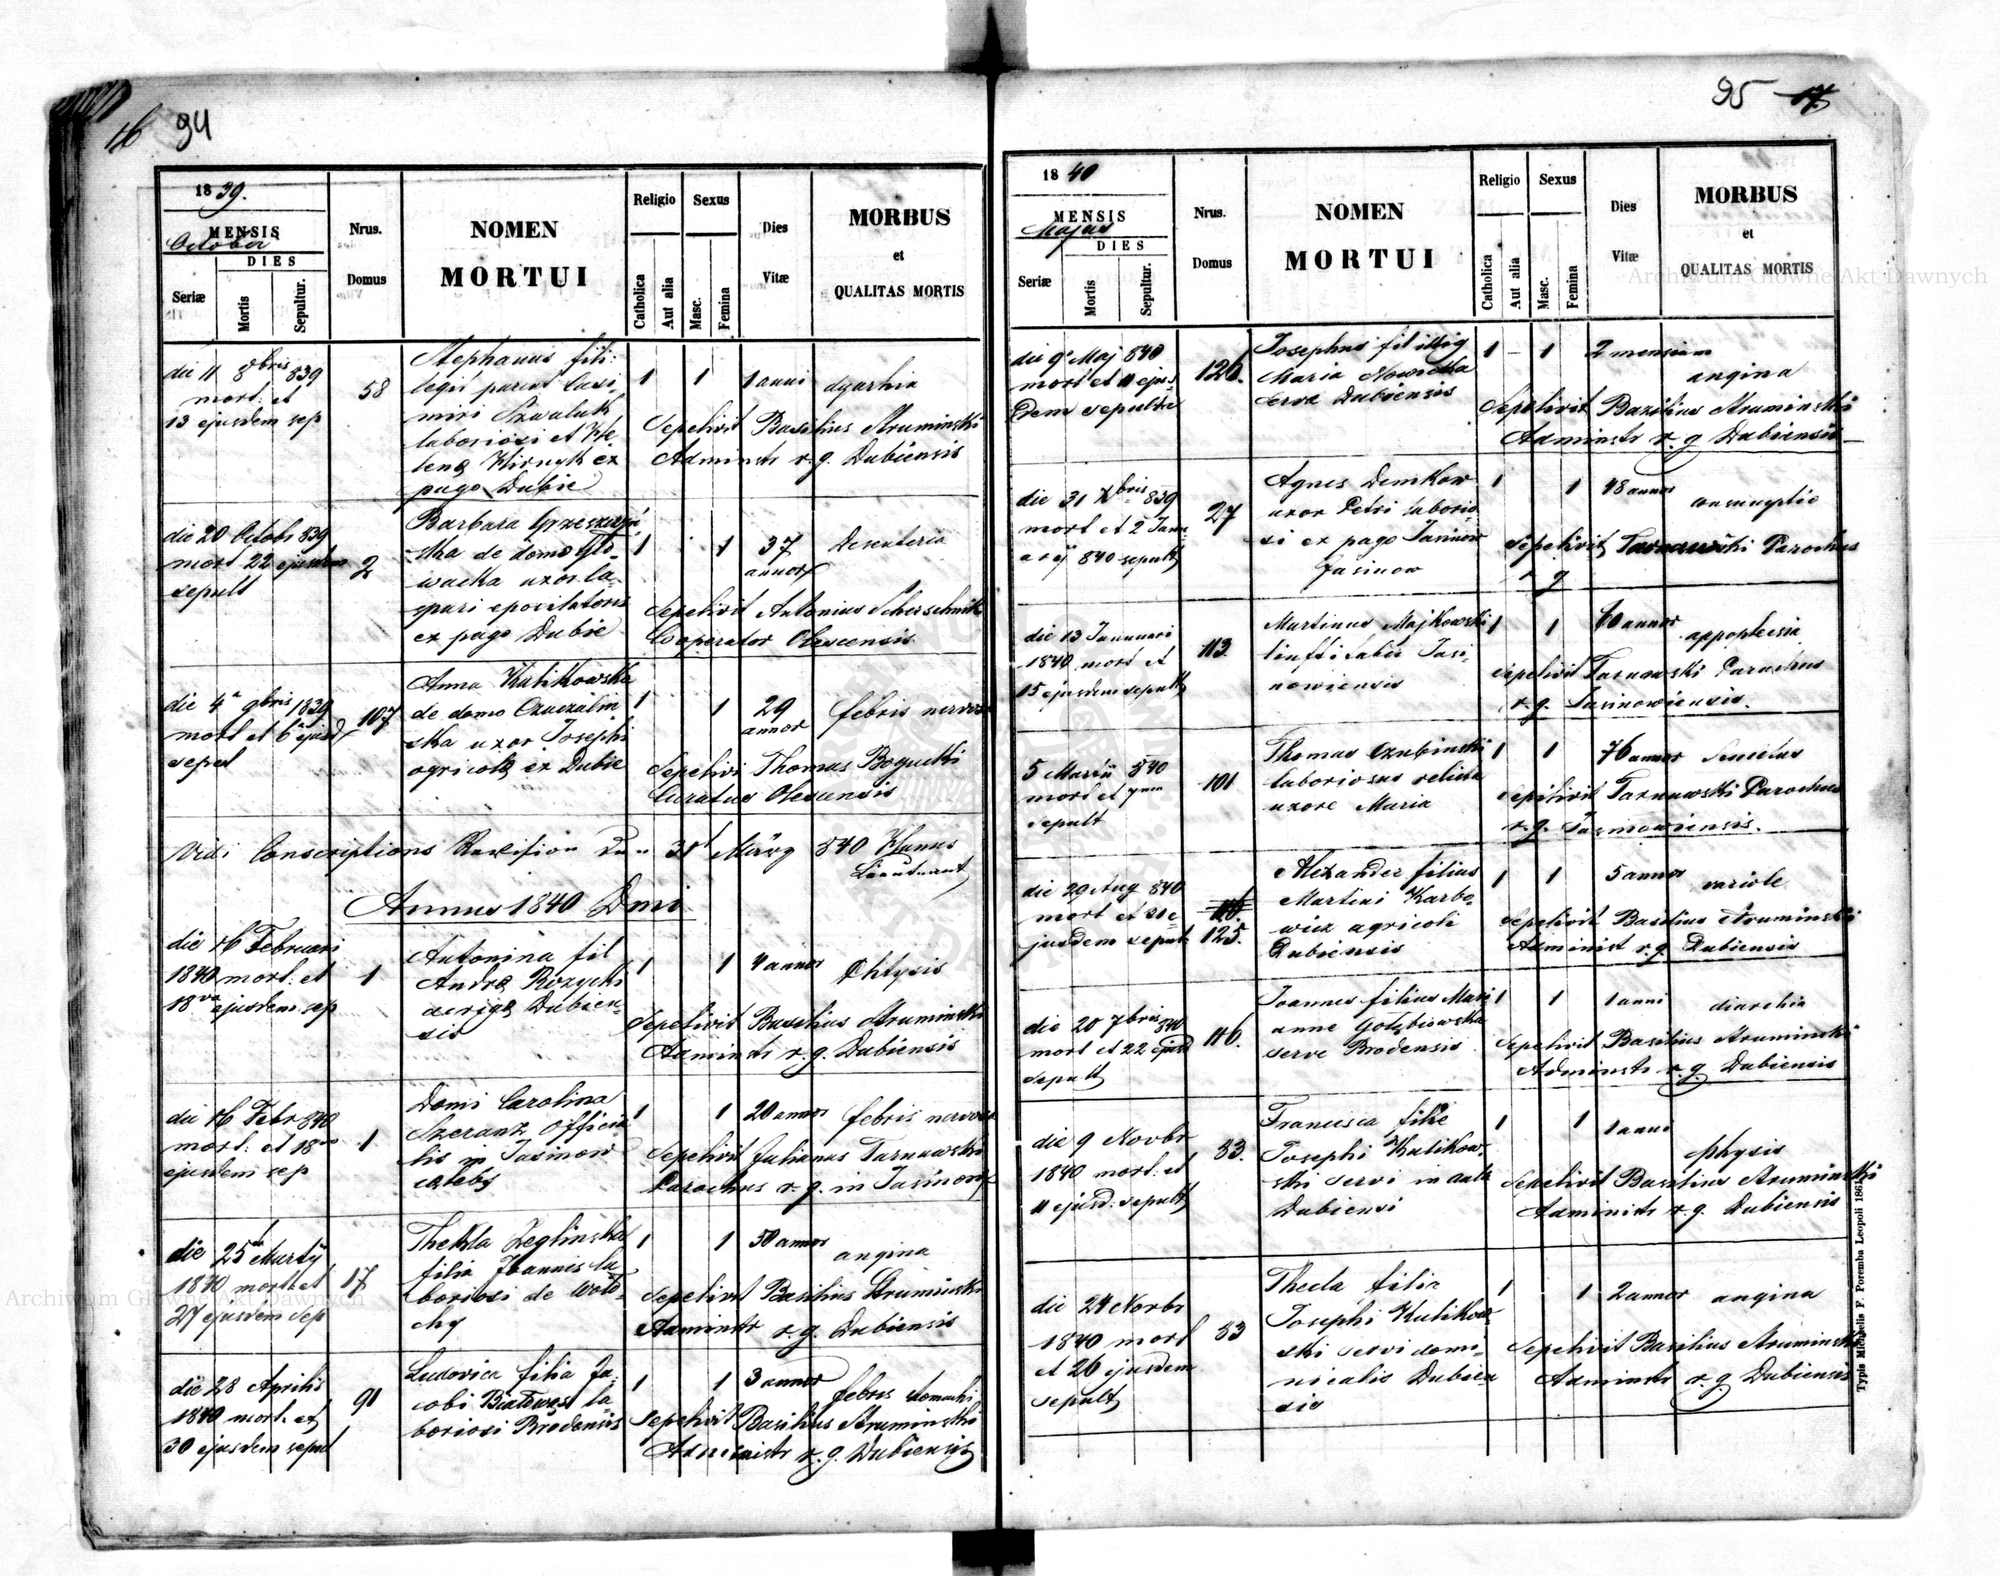 16 94
1839.
MENSIS
October
DIES
Seriæ
Mortis
Sepultur.
Nrus.
Domus
NOMEN
MORTUI
Religio
Catholica
Aut alia
Sexus
Masc.
Femina
Dies
Vitæ
MORBUS
et
QUALITAS MORTIS
die 11 8bris 839
mort: et
13 ejusdem sep
58
Stephanus fili:
legit parent Casi
miri
laboriosi et He
lena ex
pago Dubie
1 1 1 anni dyarhia
Sepelivit Basilius Struminski
Adminstr r. g. Dubiensis
die 20 Octobr 839
mort 22 ejusdem
sepult
2
Barbara
ska de domo Glo
wacka uxor Ca
spari
ex pago Dubie
1 1 37 Desenteria
annor
Sepelivit Antonius
Cooperator Olescensis
die 4a 9bris 1839
mort et 6 ejusd
sepul
107
Anna Kulikowska
de domo
ska uxor Josephi
agricolę ex Dubie
1 1 29 febris nervosa
annor
Sepelivi Thomas Bogucki
Curatus Olescensis
Vidi Conscriptions Revision 31t März 840
Lieutenant
Annus 1840 Dmi
die 16 Februari
1840 mort: et
18va ejusdem sep
1
Antonina fil
Andrę Rozycki
aurigę Dubien
sis
1 1 4 annor Phtysis
Sepelivit Basilius Struminski
Adminstr r. g. Dubiensis
die 16 Febr 840
mort: et 18va
ejusdem sep
1
Domi Carolina
Szerautz Officia
lis in Jasinow
cælebs
1 1 20 annor febris nervosa
Sepelivit Julianus Tarnawski
Parochus r. g. in Jasinow
die 25ta Martij
1840 mort et
27 ejusdem sep
17
Thekla Zeglinska
filia Joannis la
boriosi de Woło
chy
1 1 50 annor angina
Sepelivit Basilius Struminski
Adminstr r. g. Dubiensis
die 28 Aprilis
1840 mort. et
30 ejusdem sepul
91
Ludovica filia Ja
cobi la
boriosi Brodensis
1 1 3 annor febris
Sepelivit Basilius Struminski
Adminstr r. g. Dubiensis
95 17
1840
MENSIS
Majus
DIES
Seriæ
Mortis
Sepultur.
Nrus.
Domus
NOMEN
MORTUI
Religio
Catholica
Aut alia
Sexus
Masc.
Femina
Dies
Vitæ
MORBUS
et
QUALITAS MORTIS
die 9a Maj 840
mort et 11 ejus
dem sepult
126.
Josephus fil illeg
Maria Nowicka
serva Dubiensis
1 – 1 2 mensium
angina
Sepelivit Basilius Struminski
Adminstr r. g. Dubiensis
die 31 Xbris 839
mort et 2 Janu
arij 840 sepult
27
Agnes Demkow
uxor Petri laborio
si ex pago Jasinow
Jasinow
1 1 48 annor consumptio
Sepelivit Tarnawski Parochus
r g
die 13 Januari
1840 mort et
15 ejusdem sepult
113.
Martinus Majkowski
Jasi
nowiensis
1 1 70 annor appoplecsia
Sepelivit Tarnawski Parochus
r. g. Jasinowiensis.
5 Martii 840
mort et 7ma
sepult
101
Thomas Czubinski
laboriosus relicta
uxore Maria
1 1 76 annor Senectus
Sepelivit Tarnawski Parochus
r. g. Jasinowiensis.
die 29 Aug 840
mort et 31 e
jusdem sepult
116.
125.
Alexander filius
Martini Karbo
wicz agricoli
Dubiensis
1 1 5 annor variole
Sepelivit Basilius Struminski
Administ r. g. Dubiensis
die 20 7bris 840
mort et 22 ejusd
sepult
116.
Joannes filius Mari
anne Gołębiowska
serve Brodensis
1 1 1 anni diarchia
Sepelivit Basilius Struminski
Adminstr r. g. Dubiensis
die 9 Novbr
1840 mort: et
11 ejusd: sepult
33.
Francisca filie
Josephi Kulikow
ski servi in aula
Dubiensi
1 1 1 anni
physis
Sepelivit Basilius Struminski
Adminstr r. g. Dubiensis
die 24 Novbr
1840 mort
et 26 ejusdem
sepult
33
Thecla filia
Josephi Kulikow
ski servi domi
nicalis Dubien
sis
1 1 2 annor angina
Sepelivit Basilius Struminski
Adminstr r. g. Dubiensis
Typis Michaelis F. Poremba Leopoli 186
Archiwum Główne Akt Dawnych
Archiwum Główne Akt Dawnych